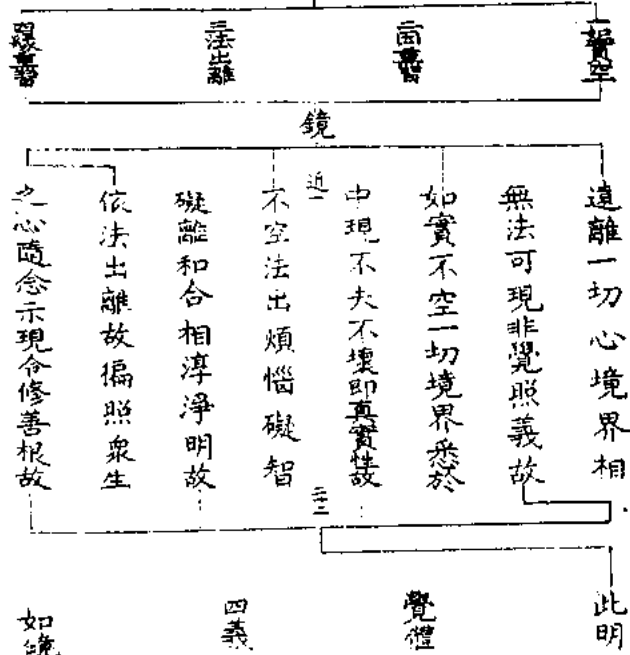 一如實空
二因熏習
三法出離
四緣熏習
鏡
遠離一切心境界相
無法可現非覺照義故
如實不空一切境界悉於
中現不失不壞即真實性故
近一
不空法出煩惱礙智
礙離和合相淳淨明故
依法出離故徧照衆生
之心隨念示現令修善根故
此明
覺體
四義
如鏡